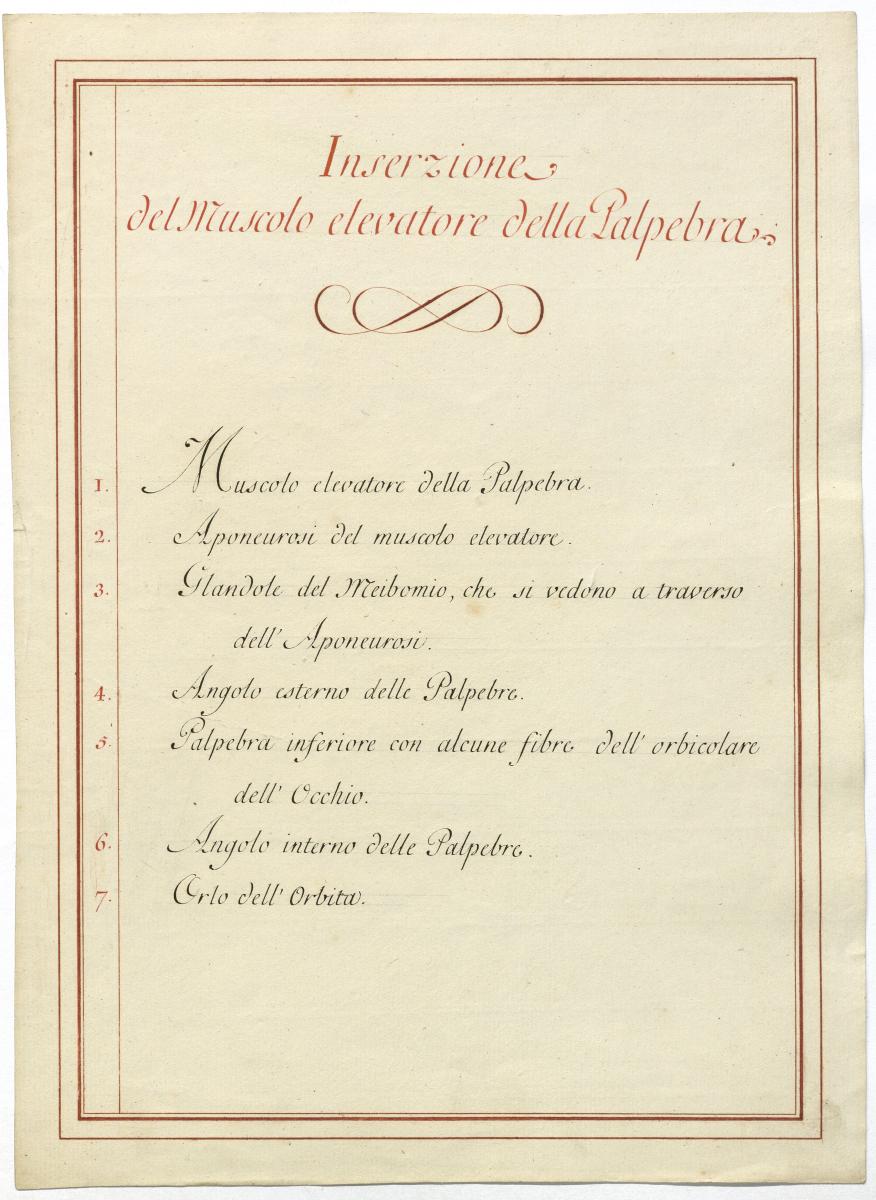 Inserzione
del Muscolo elevatore della Palpebra.
1. Muscolo elevatore della Palpebra.
2. Aponeurosi del muscolo elevatore.
3. Glandole del Meibomio, che si vedono a traverso
dell' Aponeurosi.
4. Angolo esterno delle Palpebre.
5. Palpebra inferiore con alcune fibre dell' orbicolare
dell' Occhio.
6. Angolo interno delle Palpebre.
7. Orlo dell' Orbita.